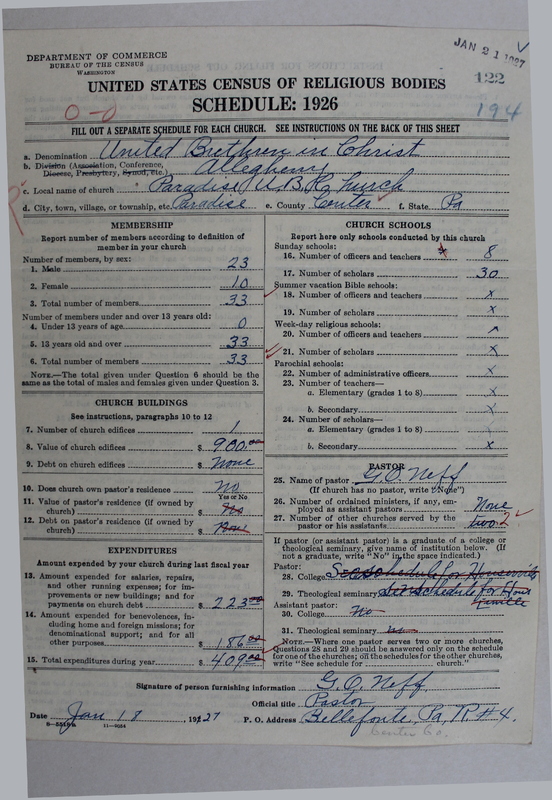 JAN 21 1927
DEPARTMENT OF COMMERCE
BUREAU OF THE CENSUS
WASHINGTON
122
UNITED STATES CENSUS OF RELIGIOUS BODIES
SCHEDULE: 1926
0-0
194
FILL OUT A SEPARATE SCHEDULE FOR EACH CHURCH. SEE INSTRUCTIONS ON THE BACK OF THIS SHEET
a. Denomination United Brethren in Christ
b. Division (Association, Conference, Diocese, Presbytery, Synod, etc.) Allegheny
c. Local name of church Paradise U.B. Church
d. City, town, village, or township, etc. Paradise e. County Center f. State Pa
MEMBERSHIP
Report number of members according to definition of
member in your church
Number of members, by sex:
1. Male 23
2. Female 10
3. Total number of members 33
Number of members under and over 13 years old:
4. Under 13 years of age 0
5. 13 years old and over 33
6. Total number of members 33
NOTE.—The total given under Question 6 should be
same as the total of males and females given under Question 3.
CHURCH BUILDINGS
See instructions, paragraphs 10 to 12
7. Number of church edifices 1
8. Value of church edifices $ 900.00
9. Debt on church edifices $ None
10. Does church own pastor's residence? No
Yes or No
11. Value of pastor's residence (if owned by
church) $ No
12. Debt on pastor's residence (if owned by
church) $
EXPENDITURES
Amount expended by your church during last fiscal year
13. Amount expended for salaries, repairs,
and other running expenses; for im-
provements or new buildings; and for
payments on church debt $ 223.00
14. Amount expended for benevolences, in-
cluding home and foreign missions; for
denominational support; and for all
other purposes $ 186.00
15. Total expenditures during year $ 409.00
CHURCH SCHOOLS
Report here only schools conducted by this church
Sunday schools:
16. Number of officers and teachers 8
17. Number of scholars 30
Summer vacation Bible schools:
18. Number of officers and teachers x
19. Number of scholars x
Week-day religious schools:
20. Number of officers and teachers x
21. Number of scholars x
Parochial schools:
22. Number of administrative officers x
23. Number of teachers—
a. Elementary (grades 1 to 8) x
b. Secondary x
24. Number of scholars—
a. Elementary (grades 1 to 8) x
b. Secondary x
PASTOR
25. Name of pastor G.O. Neff
(If church has no pastor, write "None")
26. Number of ordained ministers, if any, em-
ployed as assistant pastors None
27. Number of other churches served by the
pastor or his assistants two 2
If pastor (or assistant pastor) is a graduate of a college or
theological seminary, give name of institution below. (If
not a graduate, write "No" in the space indicated.)
Pastor:
28. College See schedule for
29. Theological seminary See schedule for
Assistant pastor:
30. College No
31. Theological seminary
NOTE.—Where one pastor serves two or more churches,
Questions 28 and 29 should be answered only on the schedule
for one of the churches; on the schedules for the other churches,
write "See schedule for church."
Signature of person furnishing information G.O. Neff
Official title Pastor
Date Jan 18, 1927 P. O. Address Bellefonte, Pa, R #4.
11—9264
Center Co.